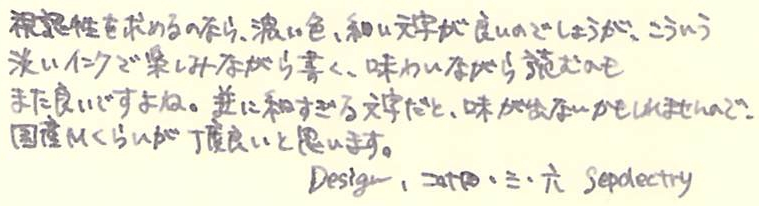 視認性を求めるのなら、濃い色、細い文字が良いのでしょうが、こういう
淡いインクで楽しみながら書く、味わいながら読むのも
また良いですよね。並に細すぎる文字だと、味が出ないかもしれませんので、
国産Mくらいが丁度良いと思います。
Design、コナロ・三・六 Sepolectry